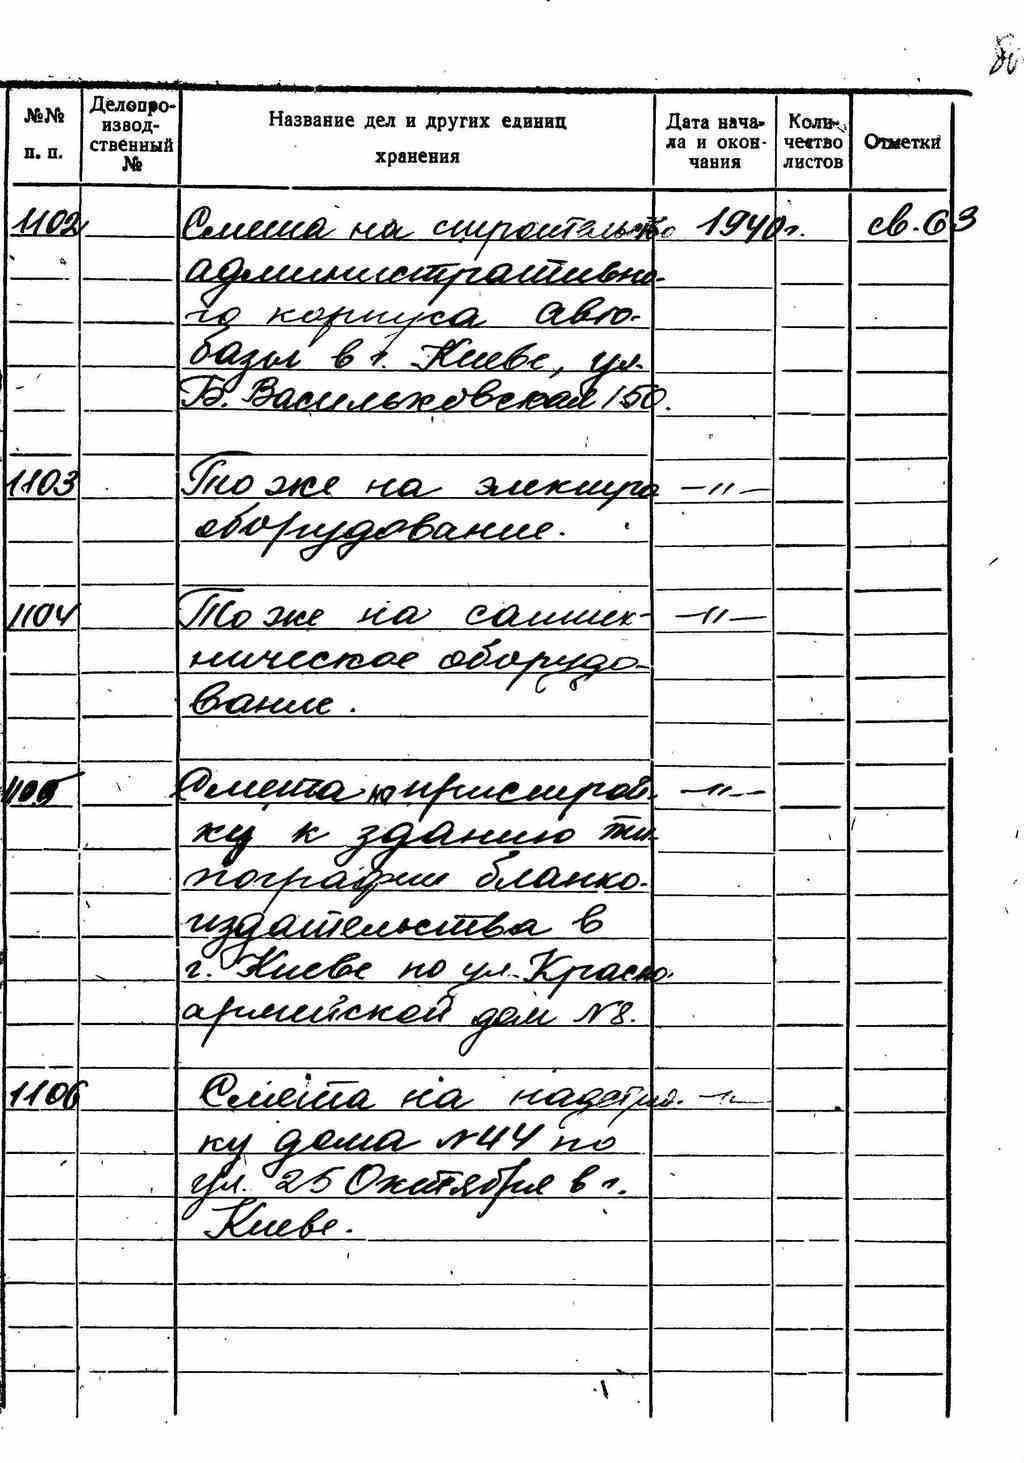 №№ п. п.
Делопроизвод-ственный №
Название дел и других единиц хранения
Дата нача-ла и окон-чания
Коли-чество листов
Отметки
1102 Смета на строительство 1940 г. св. 63
административно-
го корпуса авто-
базы в г. Киеве, ул.
Б. Васильковская 150.
1103 То же на электро -"-
оборудование.
1104 То же на саштех- -"-
ническое оборудо-
вание.
1105 Смета на пристрой- -"-
ку к зданию ти-
пографии бланко-
издательства в
г. Киеве по ул. Красно-
армейской дом №8.
1106 Смета на надстрой- -"-
ку дома №44 по
ул. 25 Октября в г.
Киеве.